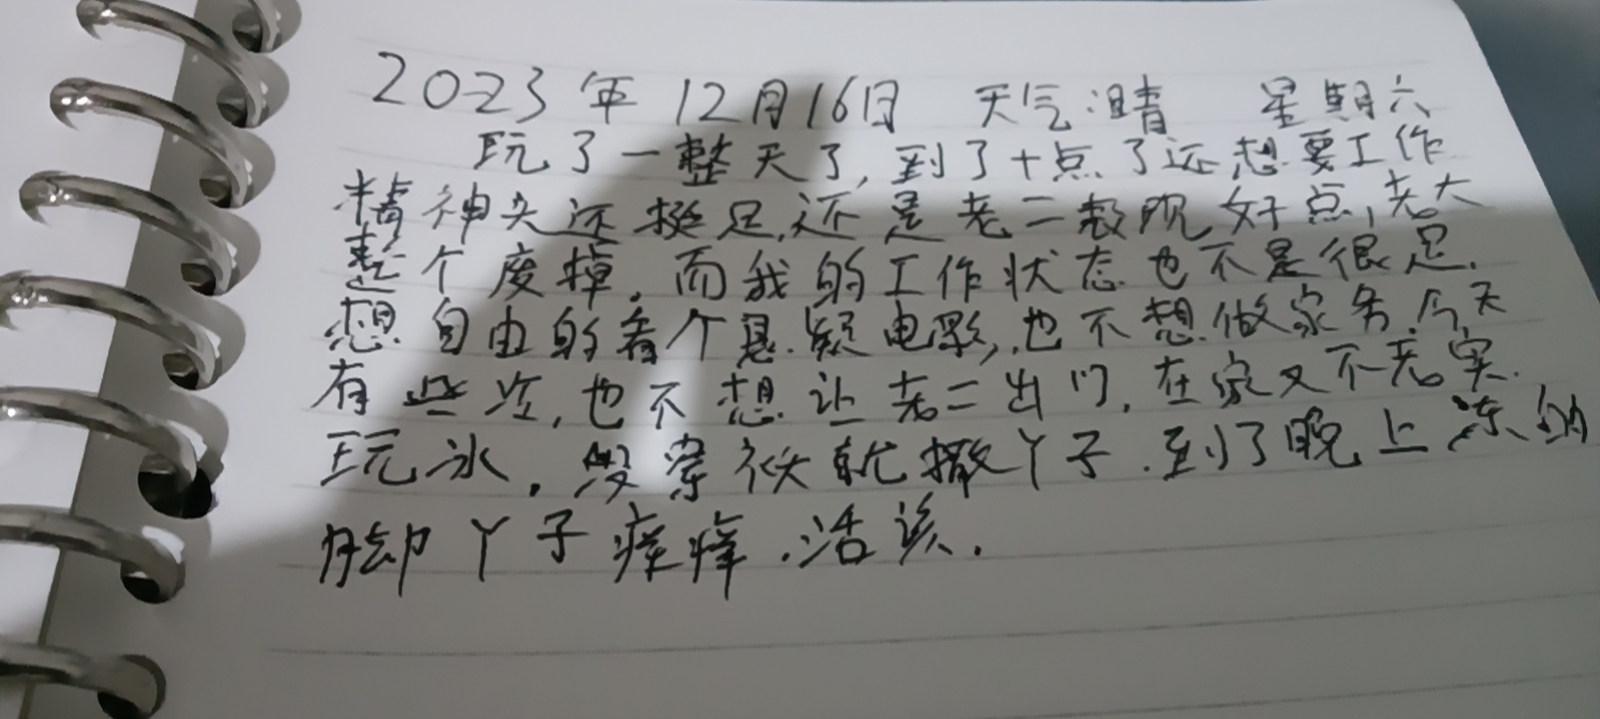 2023年12月16日 天气:晴 星期六
玩了一整天了,到了十点了还想要工作
精神头还挺足,还是老二表现好点,老大
整个废掉,而我的工作状态也不是很足.
想自由的看个悬疑电影,也不想做家务.今天
有些冷,也不想让老二出门,在家又不老实.
玩冰,没穿袄就撒丫子.到了晚上冻的
脚丫子痒痒.活该.